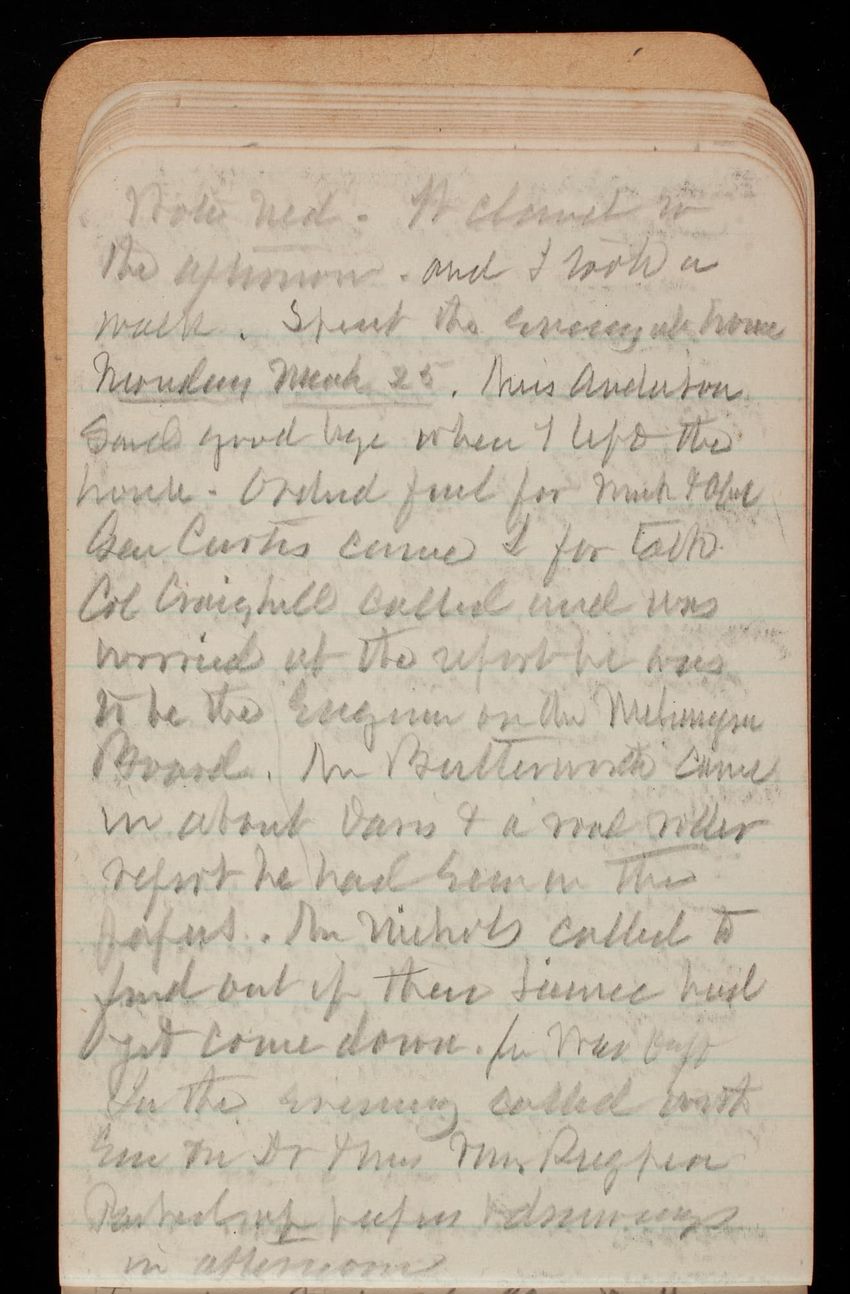 Wrote Ned. It cleared in
the afternoon. and I took a
walk. Spent the evening at home
Monday March 25. Miss Anderson
said good bye when I left the
house. Ordered fuel for March & Apl
Gen Curtis came I for talk
Col Craighill called and was
worried at the report he was
to be the Engineer on the
Board. Mr Butterworth came
in about Davis & a road roller
report he had seen in the
papers. Mr Nichols called to
find out if their license had
yet come down. fr War Dept
In the evening called with
Em on Dr & Mrs
up papers & drawings
in afternoon